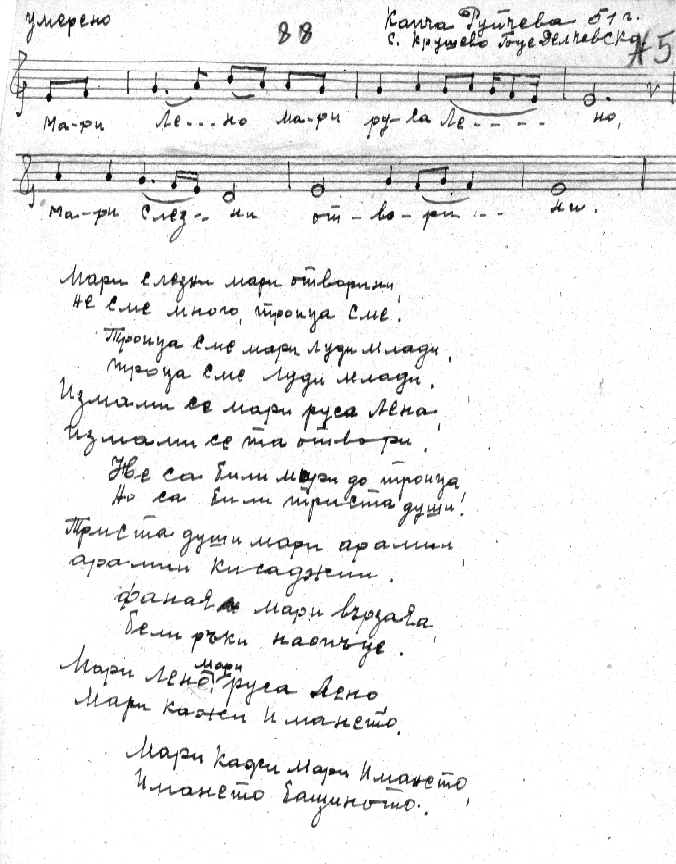 умерено
88
Канча Руйчева 51 г.
с. Крушево Гоце Делчевско
#5
Ма-ри Ле...но ма-ри ру-са Ле- - - - но,
ма-ри слез-.. ни от-во-ри... ни.
Мари слезни мари отворини,
не сме много, троица сме.
Троица сме мари луди млади,
троица сме луди млади.
Измами се мари руса Лена,
измами се та отвори,
Не са били мари до троица,
но са били триста души!
Триста души мари арамии,
арамии кисаджии.
фаная мари вързая,
бели ръки наопъце.
Мари Лено, мари руса Лено
Мари кажи Имането,
Мари Кажи Мари Имането,
Имането бащиното.